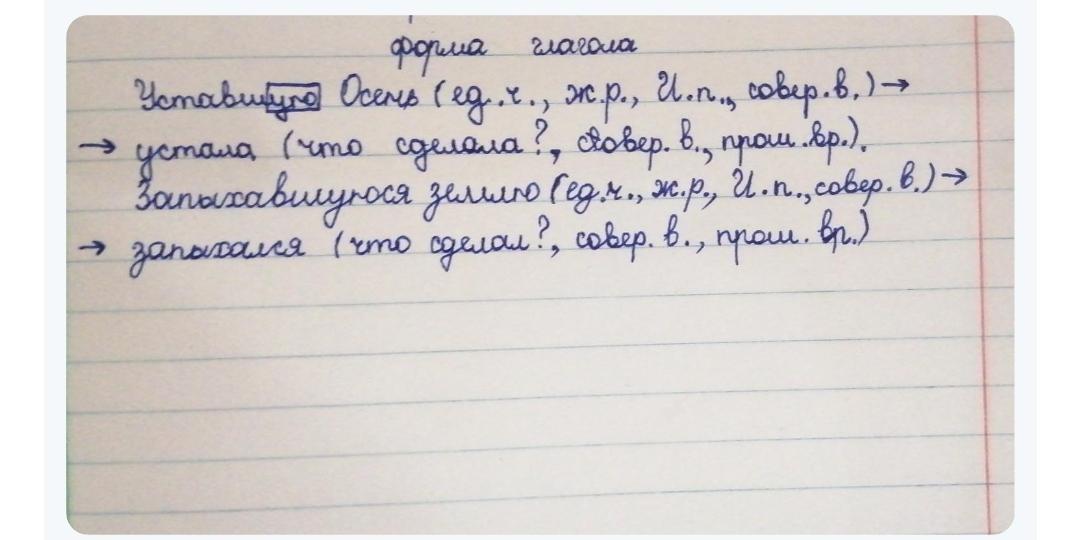 форма глагола
Уставшую Осень (ед.ч., ж.р., И.п., совер.в.) →
→ устала (что сделала?, совер. в., прош.вр.).
Запыхавшуюся землю (ед.ч., ж.р., И.п., совер. в.) →
→ запыхался (что сделал?, совер. в., прош. вр.)